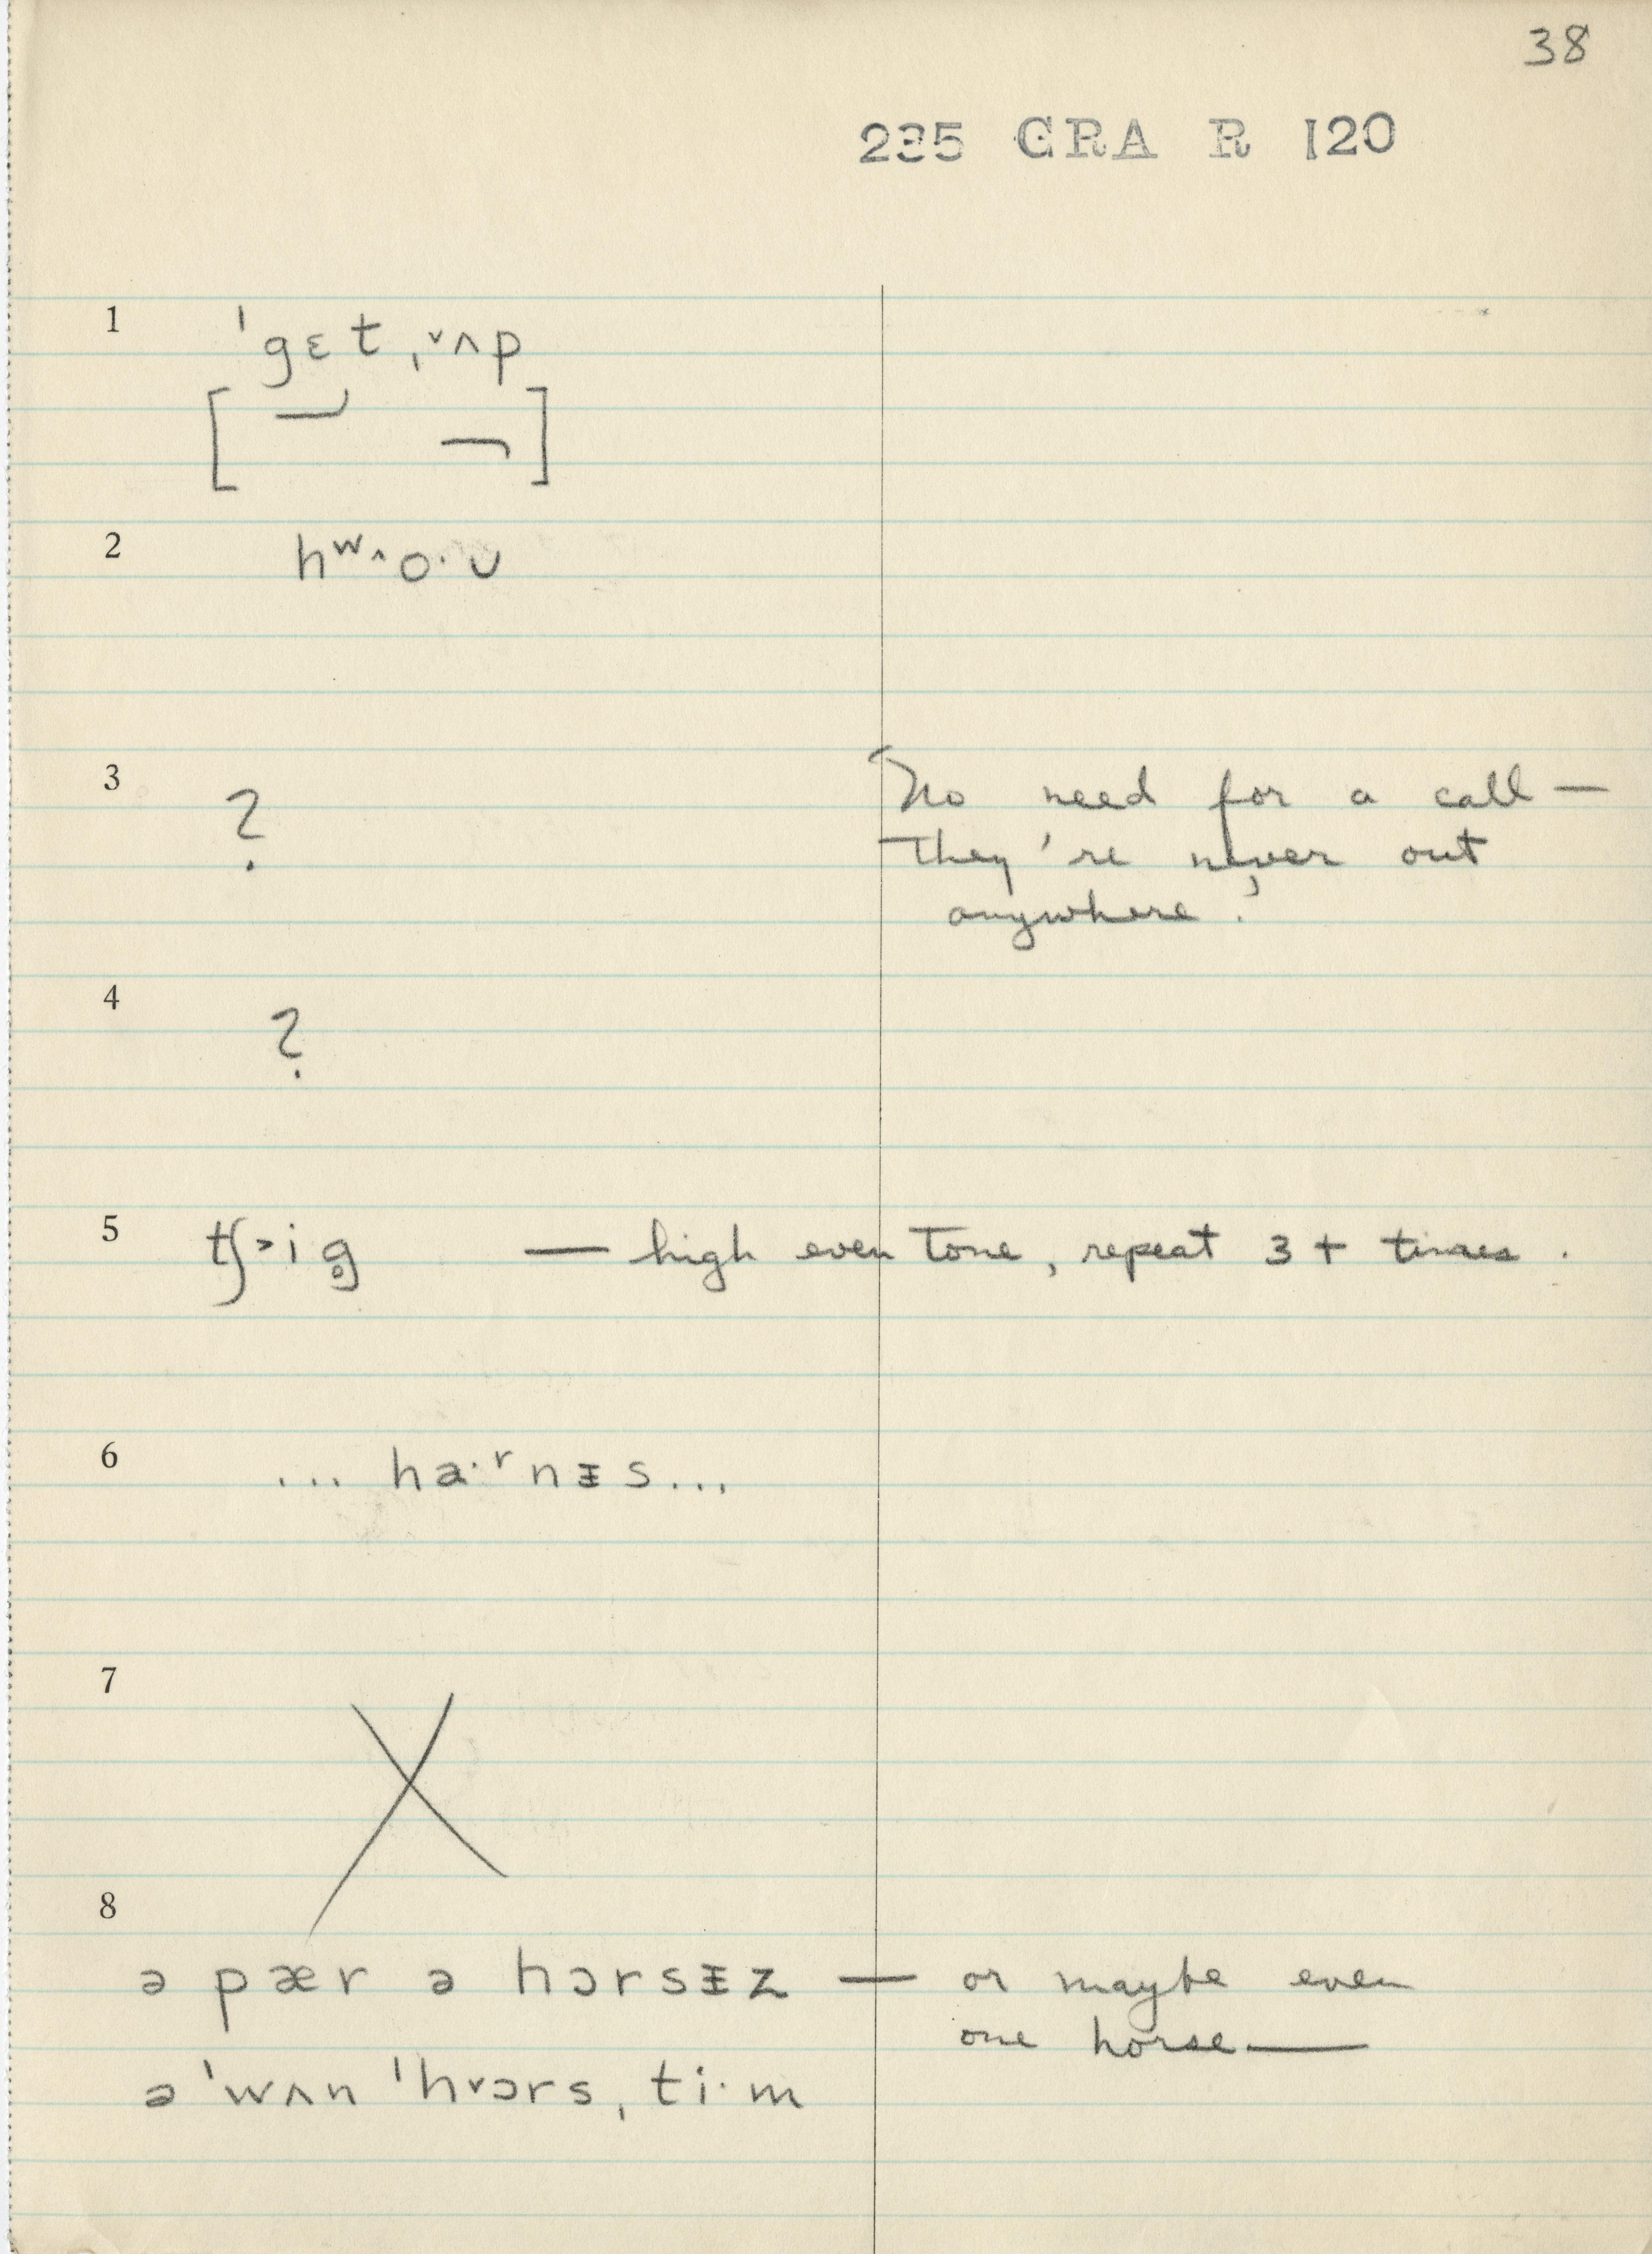 38
235 GRA R 120
1 ˈgɛt ˌ˅ʌp
[ ]
2 hʷ˄o·ʊ
3 ? "No need for a call —
They're never out
anywhere."
4 ?
5 tʃ˃ig̥ — high even tone, repeat 3+ times.
6 ... ha·ʳnᵻs...
7 X
8
ə pær ə hɔrsᵻz — or maybe even
one horse —
ə ˈwʌn ˈh˅ɔrsˌti·m